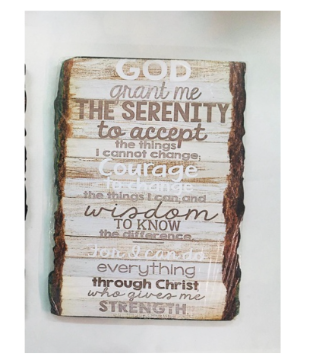 GOD
grant me
THE SERENITY
to accept
the things
I cannot change,
Courage
to change
the things I can, and
wisdom
TO KNOW
the difference.
You & can do
everything
through Christ
who gives me
STRENGTH